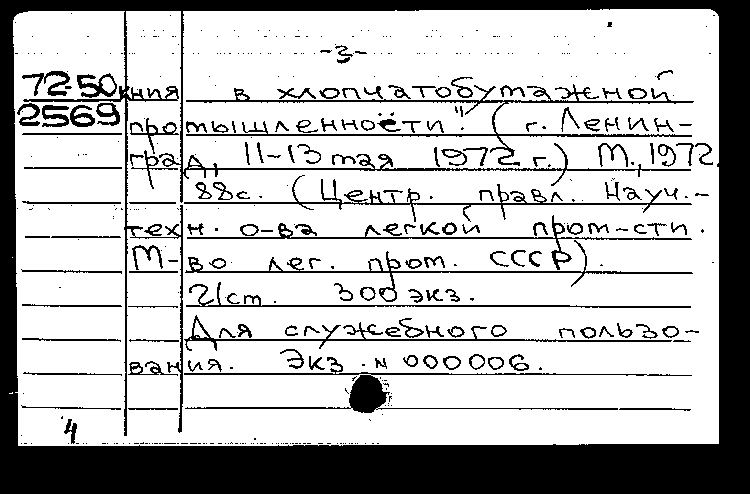 -3-
72-50 кния в хлопчатобумажной
2569 промышленности". (г. Ленин-
град, 11-13 мая 1972 г.) М., 1972.
88с. (Центр. правл. Науч.-
техн. о-ва легкой пром-сти.
М-во лег. пром. СССР).
2/ст. 300 экз.
Для служебного пользо-
вания. Экз. № 000006.
4